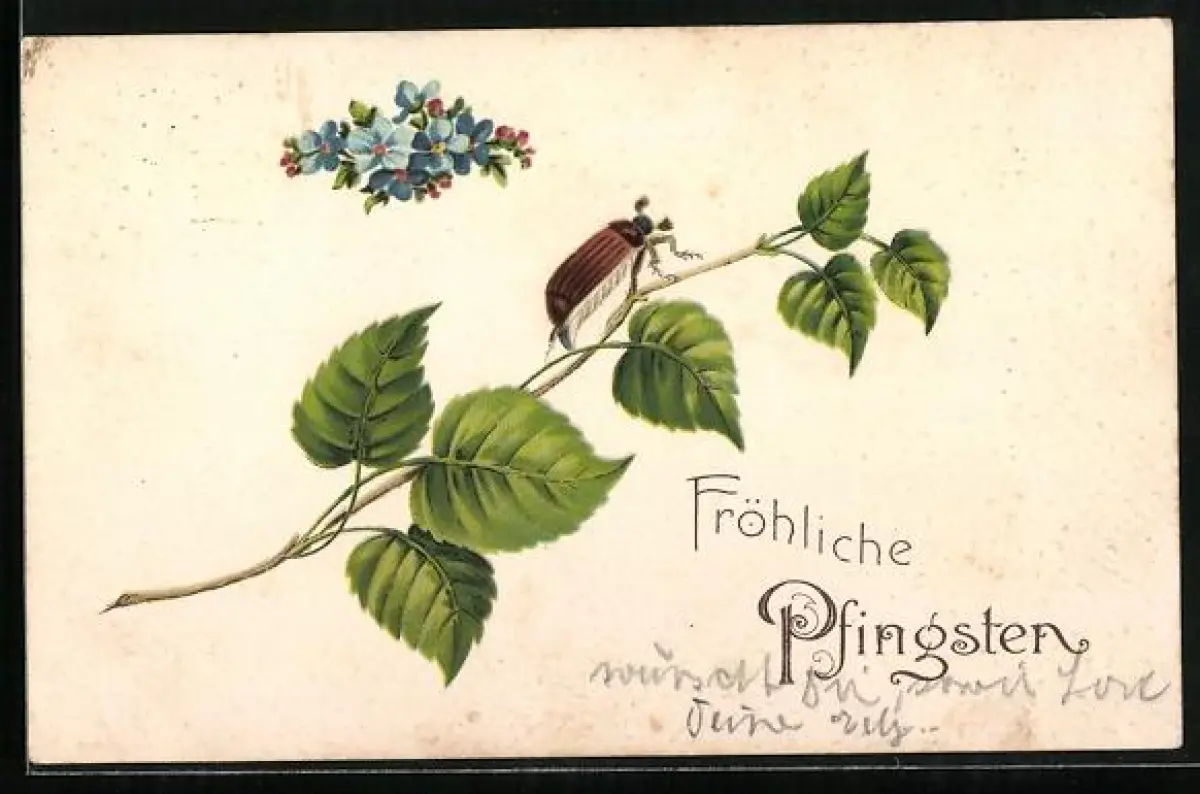 Fröhliche
Pfingsten
wünscht Dir, sowie
Deine